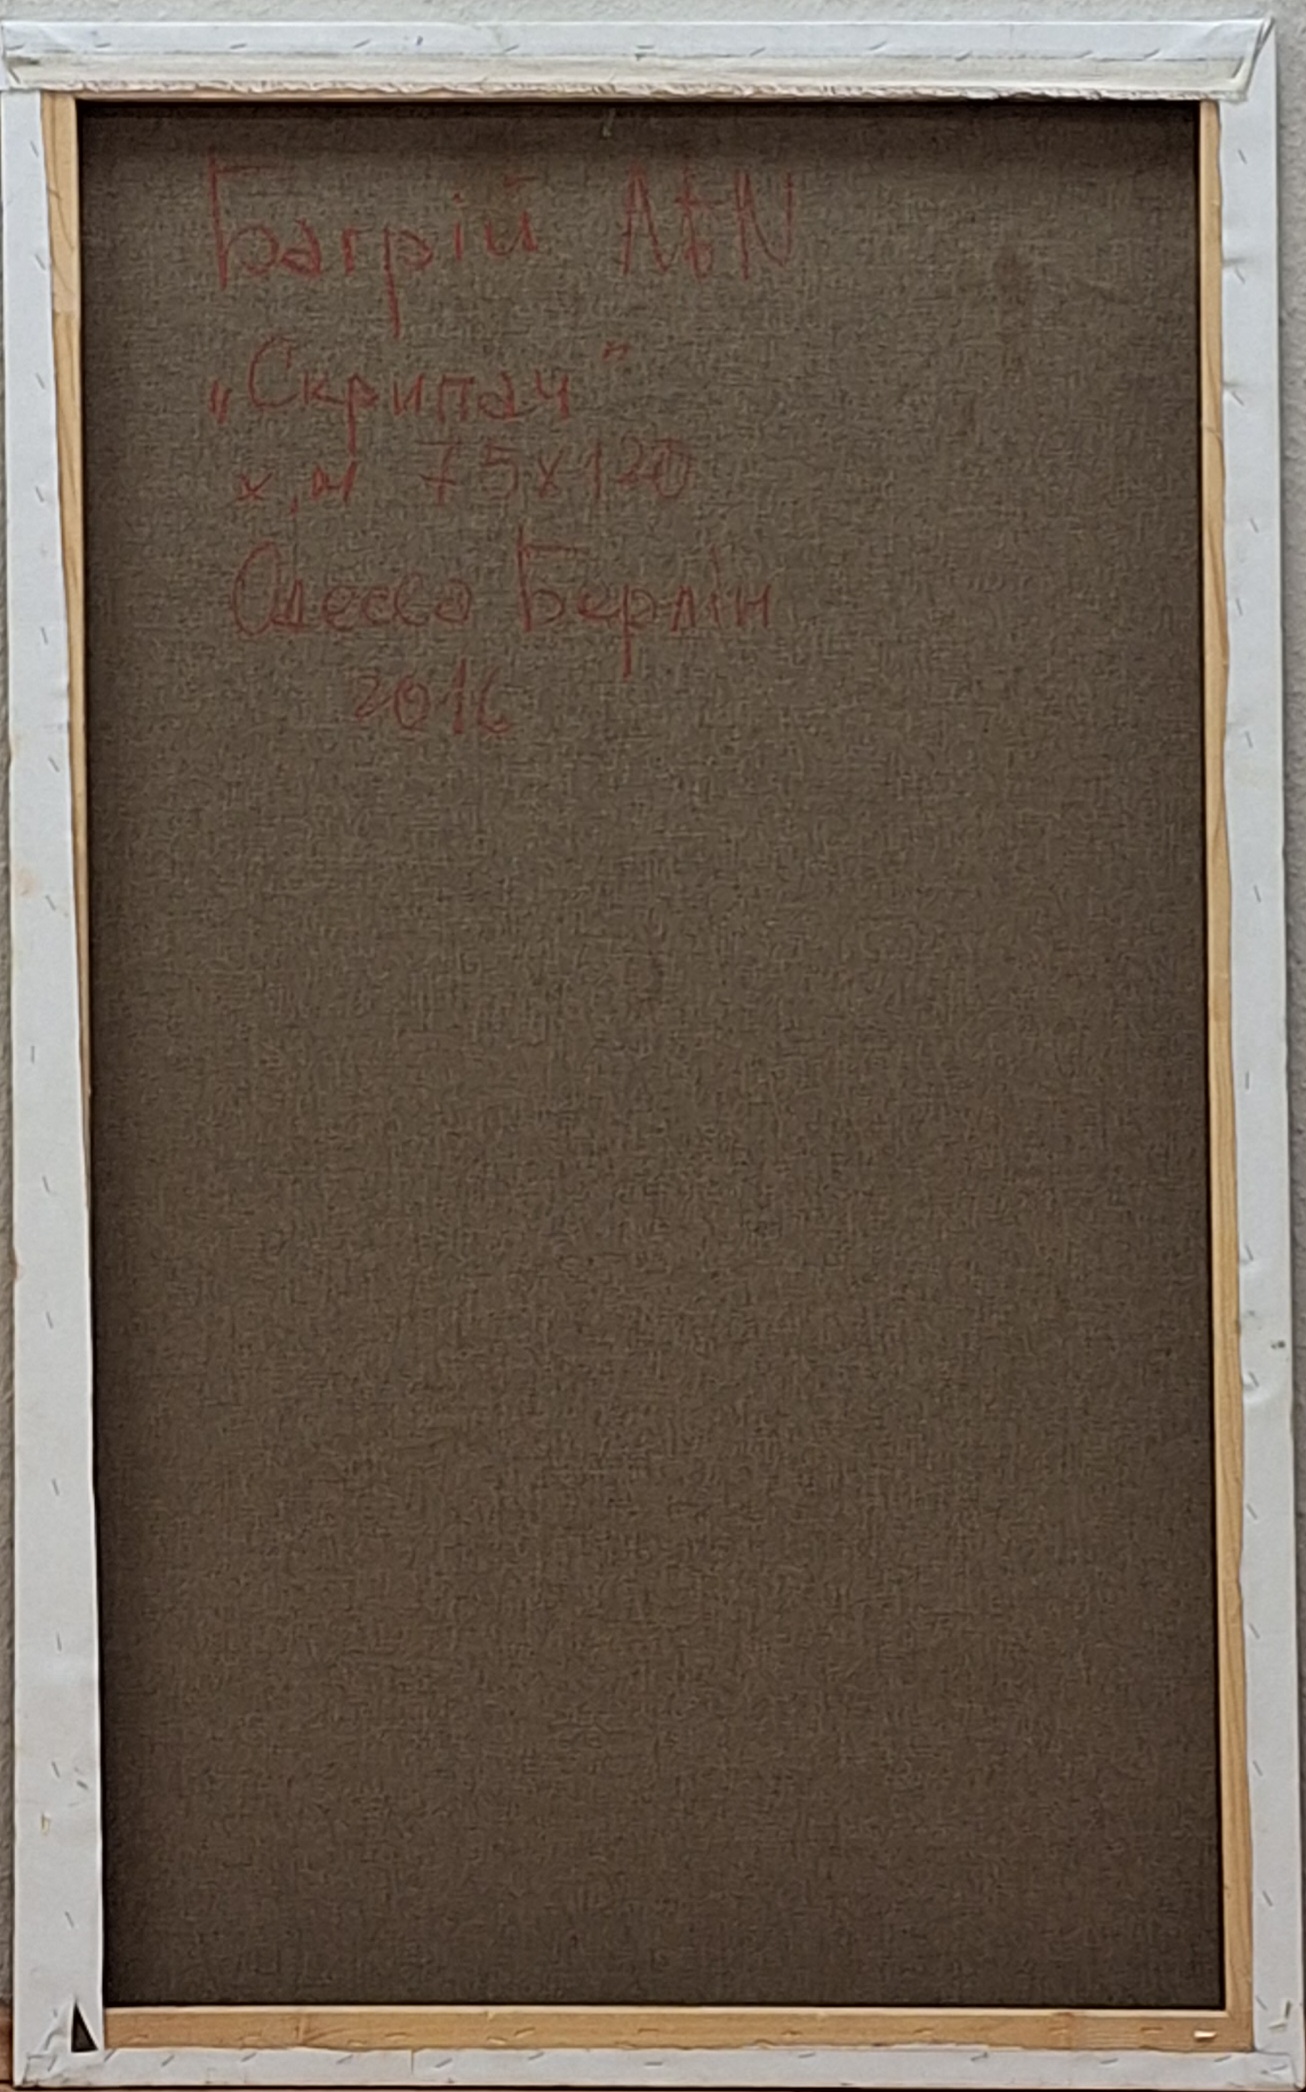 Багрій AtN
„Скрипач"
х,м 75х120
Одесса Берлін
2016